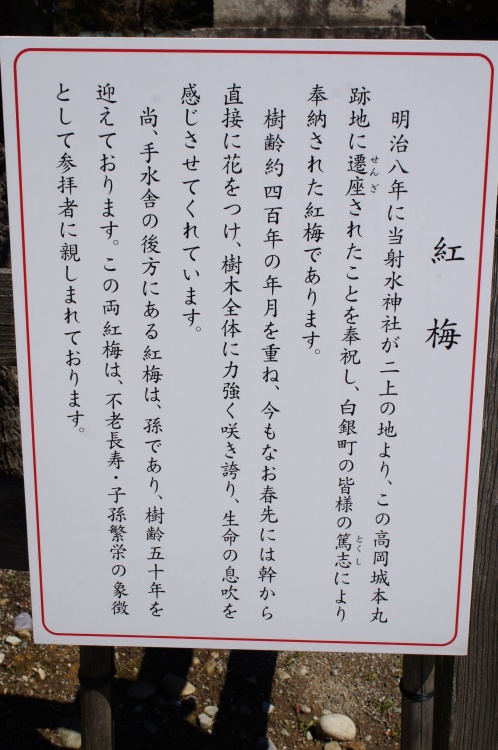 紅梅
明治八年に当射水神社が二上の地より、この高岡城本丸
跡地に遷座されたことを奉祝し、白銀町の皆様の篤志により
せんざ
とくし
奉納された紅梅であります。
樹齢約四百年の年月を重ね、今もなお春先には幹から
直接に花をつけ、樹木全体に力強く咲き誇り、生命の息吹を
感じさせてくれています。
尚、手水舎の後方にある紅梅は、孫であり、樹齢五十年を
迎えております。この両紅梅は、不老長寿・子孫繁栄の象徴
として参拝者に親しまれております。